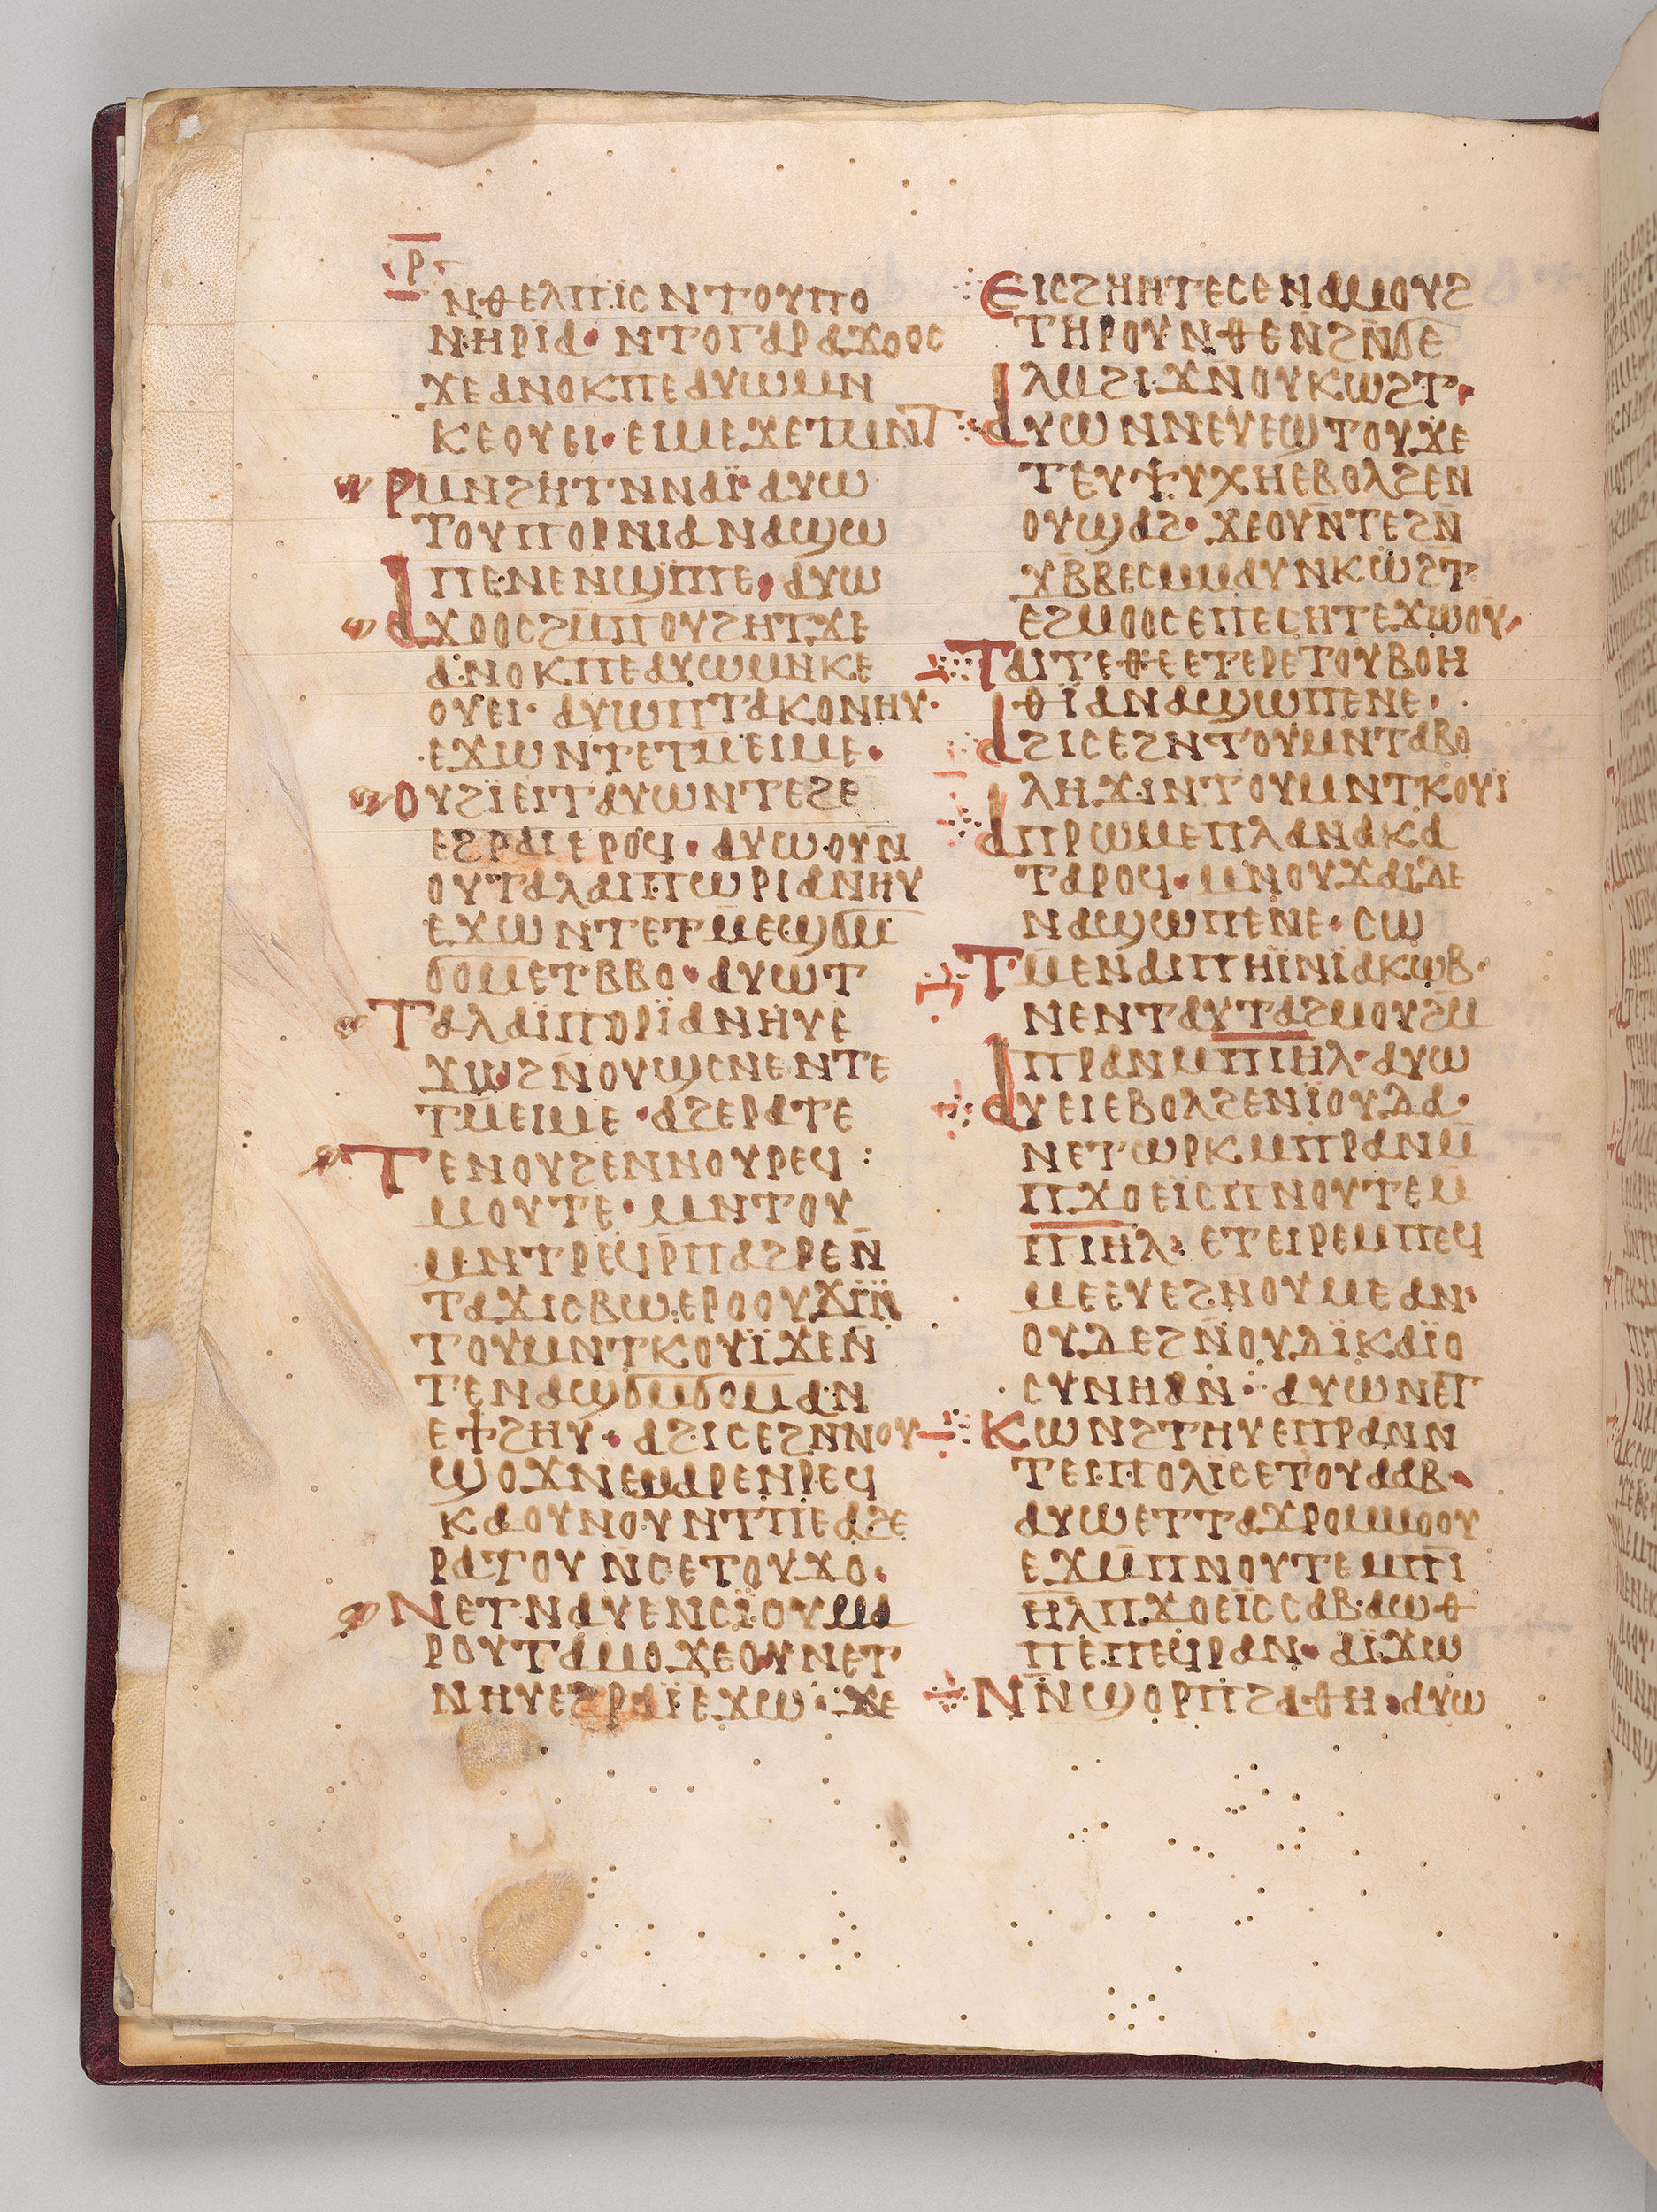 ⲣ̅
ⲛⲑⲉⲗⲡⲓ̈ⲥ ⲛⲧⲟⲩⲡⲟ
ⲛⲏⲣⲓⲁ· ⲛⲧⲟⲅⲁⲣⲁϫⲟⲟⲥ
ϫⲉⲁⲛⲟⲕⲡⲉⲁⲩⲱⲙⲛ
ⲕⲉⲟⲩⲉⲓ· ⲉⲓⲙⲉϫⲉⲧⲙⲛⲧ
ⲣⲙⲛϩⲏⲧⲛⲛⲁⲓ̈ ⲁⲩⲱ
ⲧⲟⲩⲡⲟⲣⲛⲓⲁⲛⲁϣⲱ
ⲡⲉⲛⲉⲛϣⲡⲡⲉ· ⲁⲩⲱ
ⲁϫⲟⲟⲥϩⲙⲡⲟⲩϩⲏⲧϫⲉ
ⲁⲛⲟⲕⲡⲉⲁⲩⲱⲙⲛⲕⲉ
ⲟⲩⲉⲓ· ⲁⲩⲱⲡⲧⲁⲕⲟⲛⲏⲩ·
ⲉϫⲱⲛⲧⲉⲧⲙ̅ⲉⲓⲙⲉ·
ⲟⲩϩⲓ̈ⲉⲓⲧⲁⲩⲱⲛⲧⲉϩⲉ
ⲉϩⲣⲁⲓⲉⲣⲟϥ· ⲁⲩⲱⲟⲩⲛ̅
ⲟⲩⲧⲁⲗⲁⲓⲡⲱⲣⲓⲁⲛⲏⲩ
ⲉϫⲱⲛⲧⲉⲧⲙ̅ⲉϣϭⲙ̅
ϭⲟⲙⲉⲧⲃⲃⲟ· ⲁⲩⲱⲧ
ⲧⲁⲗⲁⲓ̈ⲡⲟⲣⲓ̈ⲁⲛⲏⲩⲉ
ϫⲱϩⲛ̅ⲟⲩϣⲥⲛⲉⲛⲧⲉ
ⲧⲙ̅ⲉⲓⲙⲉ· ⲁϩⲉⲣⲁⲧⲉ
ⲧⲉⲛⲟⲩϩⲉⲛⲛⲟⲩⲣⲉϥ :
ⲙⲟⲩⲧⲉ· ⲙⲛⲧⲟⲩ
ⲙⲛⲧⲣⲉϥⲣ̅ⲡⲁϩⲣⲉⲛ̅
ⲧⲁϫⲓⲥⲃⲱⲉⲣⲟⲟⲩϫⲓ̈ⲛ̅
ⲧⲟⲩⲙⲛⲧⲕⲟⲩⲓ̈ϫⲉⲛ̅
ⲧⲉⲛⲁϣϭⲙϭⲟⲙⲁⲛ
ⲉϯϩⲏⲩ· ⲁϩⲓⲥⲉϩⲛⲛⲟⲩ
ϣⲟϫⲛⲉⲙⲁⲣⲉⲛⲣⲉϥ
ⲕⲁⲟⲩⲛⲟⲩⲛⲧⲡⲉⲁϩⲉ
ⲣⲁⲧⲟⲩ ⲛ̅ⲥⲉⲧⲟⲩϫⲟ·
ⲛⲉⲧⲛⲁⲩⲉⲛⲥⲓ̈ⲟⲩⲙⲁ
ⲣⲟⲩⲧⲁⲙⲟϫⲉⲟⲩⲛⲉⲧ
ⲛⲏⲩⲉϩⲣⲁⲓ̈ⲉϫⲱ· ϫⲉ
ⲉⲓⲥϩⲏⲏⲧⲉⲥⲉⲛⲁⲙⲟⲩϩ
ⲧⲏⲣⲟⲩⲛⲑⲉⲛϩⲛϭⲉ
ⲗⲙϩⲓϫⲛⲟⲩⲕⲱϩⲧ·
ⲁⲩⲱⲛⲛⲉⲩⲉϣⲧⲟⲩϫⲉ
ⲧⲉⲩⲯⲩⲭⲏⲉⲃⲟⲗϩⲉⲛ
ⲟⲩϣⲁϩ· ϫⲉⲟⲩⲛⲧⲉϩⲛ̅
ϫⲃ̅ⲃⲉⲥⲙⲙⲁⲩⲛⲕⲱϩⲧ
ⲉϩⲙⲟⲟⲥⲉⲡⲉⲥⲏⲧⲉϫⲱⲟⲩ·
ⲧⲁⲓⲧⲉⲑⲉⲉⲧⲉⲣⲉⲧⲟⲩⲃⲟⲏ
ⲑⲓ̈ⲁⲛⲁϣⲱⲡⲉⲛⲉ·
ⲁϩⲓⲥⲉϩⲛⲧⲟⲩⲙⲛⲧⲁⲃⲟ
ⲗⲏϫⲓⲛⲧⲟⲩⲙⲛⲧⲕⲟⲩⲓ̈
ⲁⲡⲣⲱⲙⲉⲡⲗⲁⲛⲁⲕⲁ
ⲧⲁⲣⲟϥ· ⲙⲛⲟⲩϫⲁⲓⲇⲉ
ⲛⲁϣⲱⲡⲉⲛⲉ· ⲥⲱ
ⲧⲙⲉⲛⲁⲓⲡⲏⲓ̈ⲛⲓ̈ⲁⲕⲱⲃ·
ⲛⲉⲛⲧⲁⲩⲧⲁϩⲙⲟⲩϩⲙ
ⲡⲣⲁⲛⲙⲡⲓⲏⲗ· ⲁⲩⲱ
ⲁⲩⲉⲓⲉⲃⲟⲗϩⲉⲛⲓ̈ⲟⲩⲇⲁ·
ⲛⲉⲧⲱⲣⲕⲙⲡⲣⲁⲛⲙ̅
ⲡϫⲟⲉⲓ̈ⲥⲡⲛⲟⲩⲧⲉⲙ̅
ⲡⲓⲏⲗ· ⲉⲧⲉⲓⲣⲉⲙⲡⲉϥ
ⲙⲉⲉⲩⲉϩⲛ̅ⲟⲩⲙⲉⲁⲛ·
ⲟⲩⲇⲉϩⲛ̅ⲟⲩⲇⲓ̈ⲕⲁⲓ̈ⲟ
ⲥⲩⲛⲏⲁⲛ· ⲁⲩⲱⲛⲉⲧ
ⲕⲱⲛϩⲧⲏⲩⲉⲡⲣⲁⲛⲛ
ⲧⲉⲓⲡⲟⲗⲓⲥⲉⲧⲟⲩⲁⲁⲃ·
ⲁⲩⲱⲉⲧⲧⲁϫⲣⲟⲙⲙⲟⲟⲩ
ⲉϫⲙ̅ⲡⲛⲟⲩⲧⲉⲙⲡⲓ̅
ⲏ̅ⲗⲡϫⲟⲉⲓ̈ⲥⲥⲁⲃⲁⲱⲑ
ⲡⲉⲡⲉϥⲣⲁⲛ· ⲁⲓ̈ϫⲱ
ⲛⲛ̅ϣⲟⲣⲡϩⲁⲑⲏ· ⲁⲩⲱ